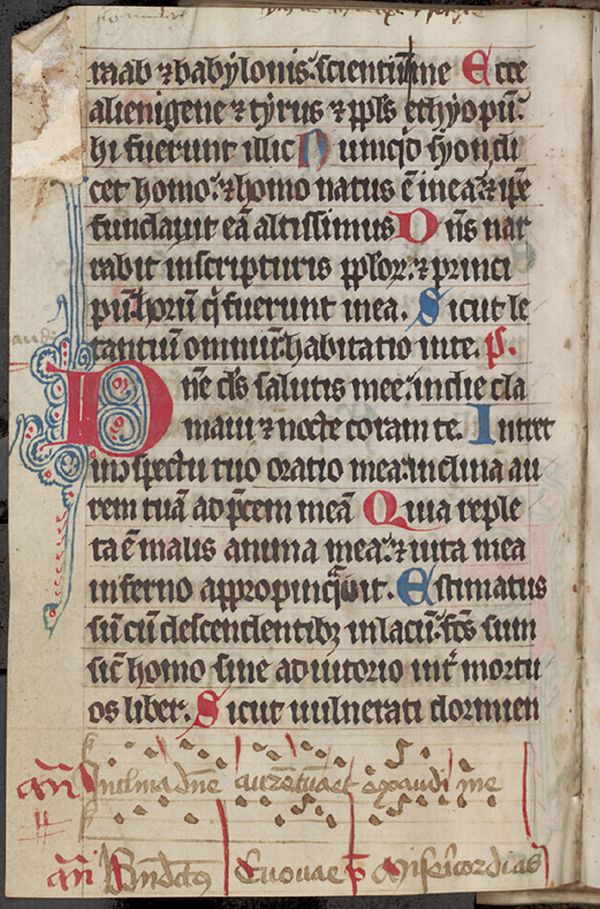 raab ⁊ babylonis. scientiū me Ecce
alienigene ⁊ tyrus ⁊ ppls ethyopū.
hi fuerunt illic Numq̄d syon di
cet homo. ⁊ homo natus ē in ea. ⁊ ip̄e
fundauit eā altissimus Dn̄s nar
rabit in scripturis pp̄lor. ⁊ princi
pū. horū q̄ fuerunt in ea. Sicut le
tantiū omniū. habitatio in te. p̄s.
Dn̄e ds̄ salutis mee. in die cla
maui ⁊ nocte coram te. Intret
in ɔspectu tuo oratio mea. inclina au
rem tuā ad p̄cem meā Quia reple
ta ē malis anima mea. ⁊ uita mea
inferno appropinquauit. Estimatus
sū cū descendentibꝫ in lacū. fc̄s sum
sic̄ homo sine adiutorio int̄ mortu
os liber. Sicut uulnerati dormien
añ Inclina dn̄e aurē tuā et exaudi me
añ Bn̄dictꝰ Euouae p̄ Misericordias